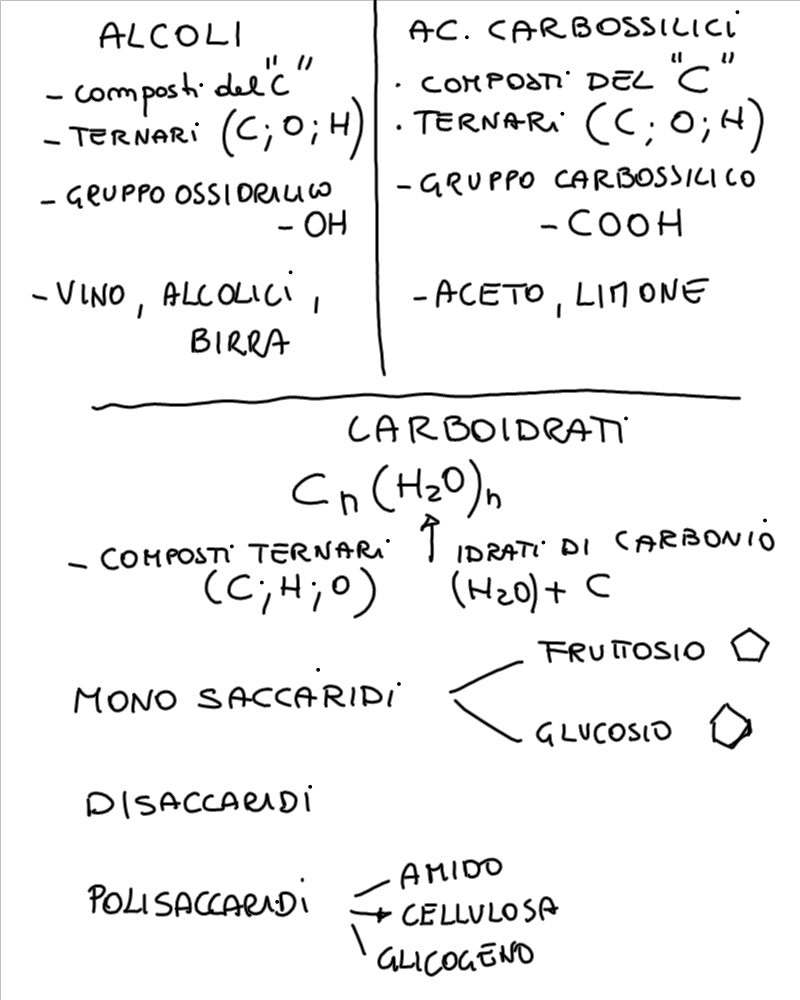 ALCOLI
- composti del "C"
- TERNARI (C; O; H)
- GRUPPO OSSIDRILICO
- OH
- VINO, ALCOLICI,
BIRRA
AC. CARBOSSILICI
· COMPOSTI DEL "C"
· TERNARI (C; O; H)
- GRUPPO CARBOSSILICO
- COOH
- ACETO, LIMONE
CARBOIDRATI
Cn (H2O)n
- COMPOSTI TERNARI
(C; H; O)
↑ IDRATI DI CARBONIO
(H2O) + C
MONO SACCARIDI
FRUTTOSIO
GLUCOSIO
DISACCARIDI
POLISACCARIDI
AMIDO
CELLULOSA
GLICOGENO